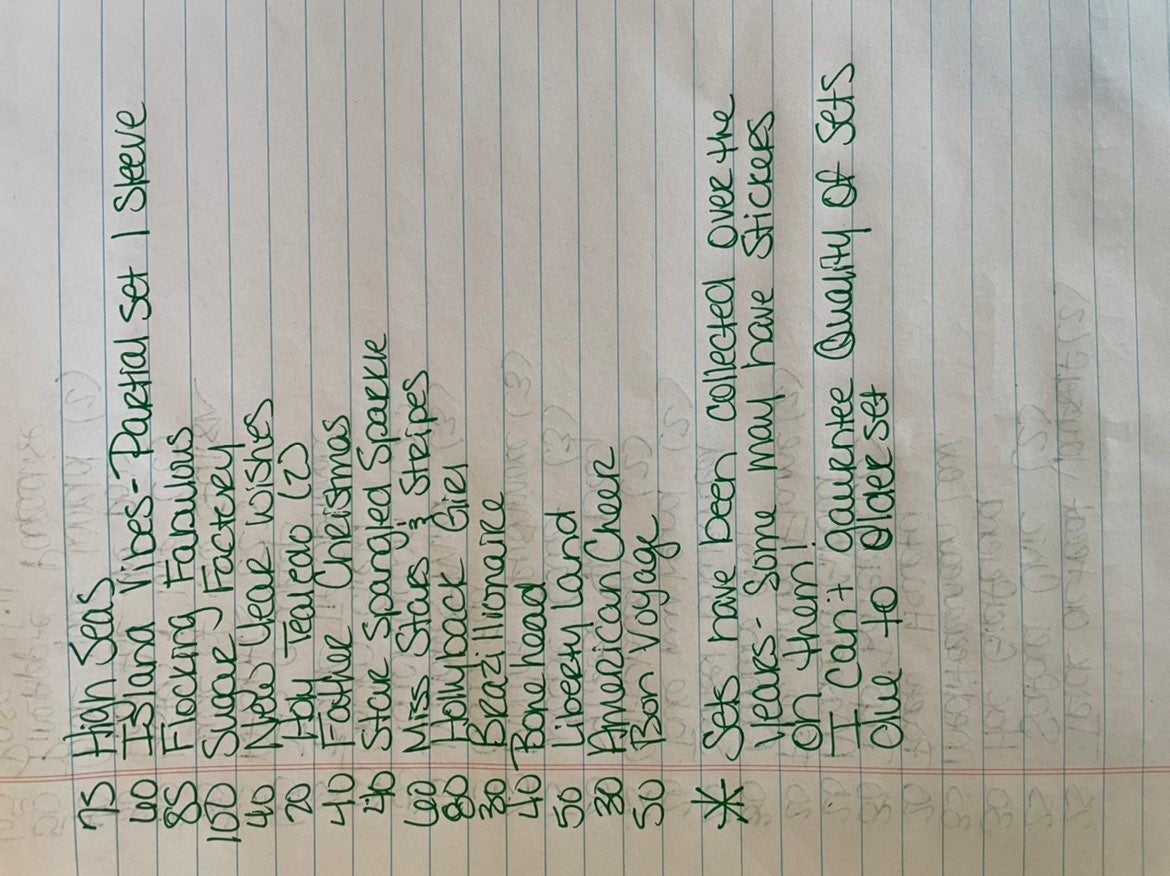 75 High Seas
60 Island Vibes - Partial set 1 Sleeve
85 Flocking Fabulous
100 Sugar Factory
40 New Year Wishes
20 Holy Tearedo (2)
40 Father Christmas
40 Star Spangled Sparkle
60 Miss Stars & Stripes
80 Hollyback Girl
30 Brazillionaire
40 Bonehead
50 Liberty Land
30 American Cheer
50 Bon Voyage
* Sets have been collected over the
years - Some may have Stickers
on them!
I Can't gaurntee Quality Of Sets
due to Older set